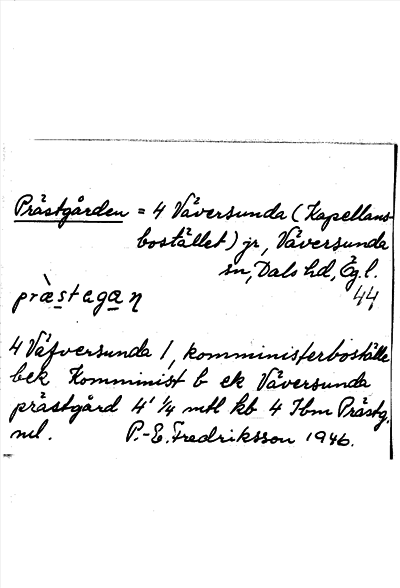 Prästgården = 4 Väversunda (Kapellans-
bostället) jr, Väversunda
sn, Dals hd, Ög. l.
præ̀stagaṇ 44
4 Väfversunda 1, komministerboställe
bek Komminist b ek Väversunda
prästgård 4' 1/4 mtl kb 4 Ibm Prästg.
ml. P.-E. Fredriksson 1946.